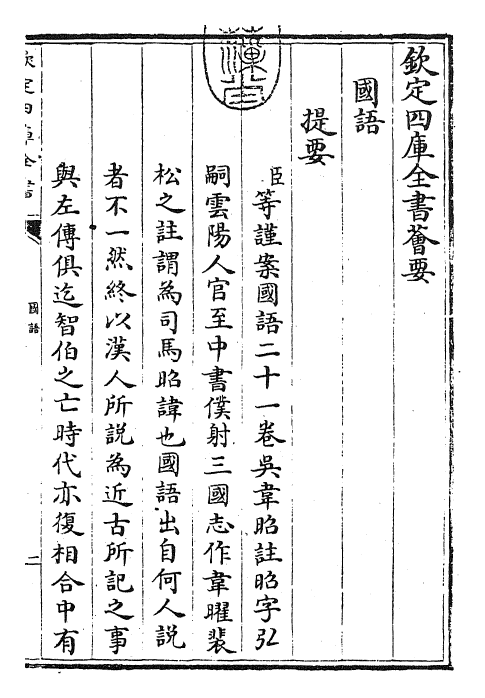 欽定四庫全書薈要
國語
提要
臣等謹案國語二十一卷吳韋昭註昭字弘
嗣雲陽人官至中書僕射三國志作韋曜裴
松之註謂為司馬昭諱也國語出自何人説
者不一然終以漢人所説為近古所記之事
與左傳俱迄智伯之亡時代亦復相合中有
欽定四庫全書
國語
二